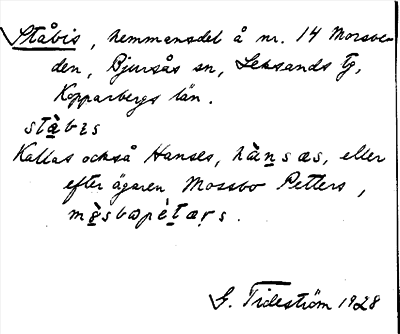 Ståbis, hemmansdel å nr. 14 Morsbo-
den, Bjursås sn, Leksands tg,
Kopparbergs län.
stå̀bɩs
Kallas också Hanses, hà̱n̲sæs, eller
efter ägaren Mossbo Petters,
pé̱t̲æṛs.
G. Tideström 1928